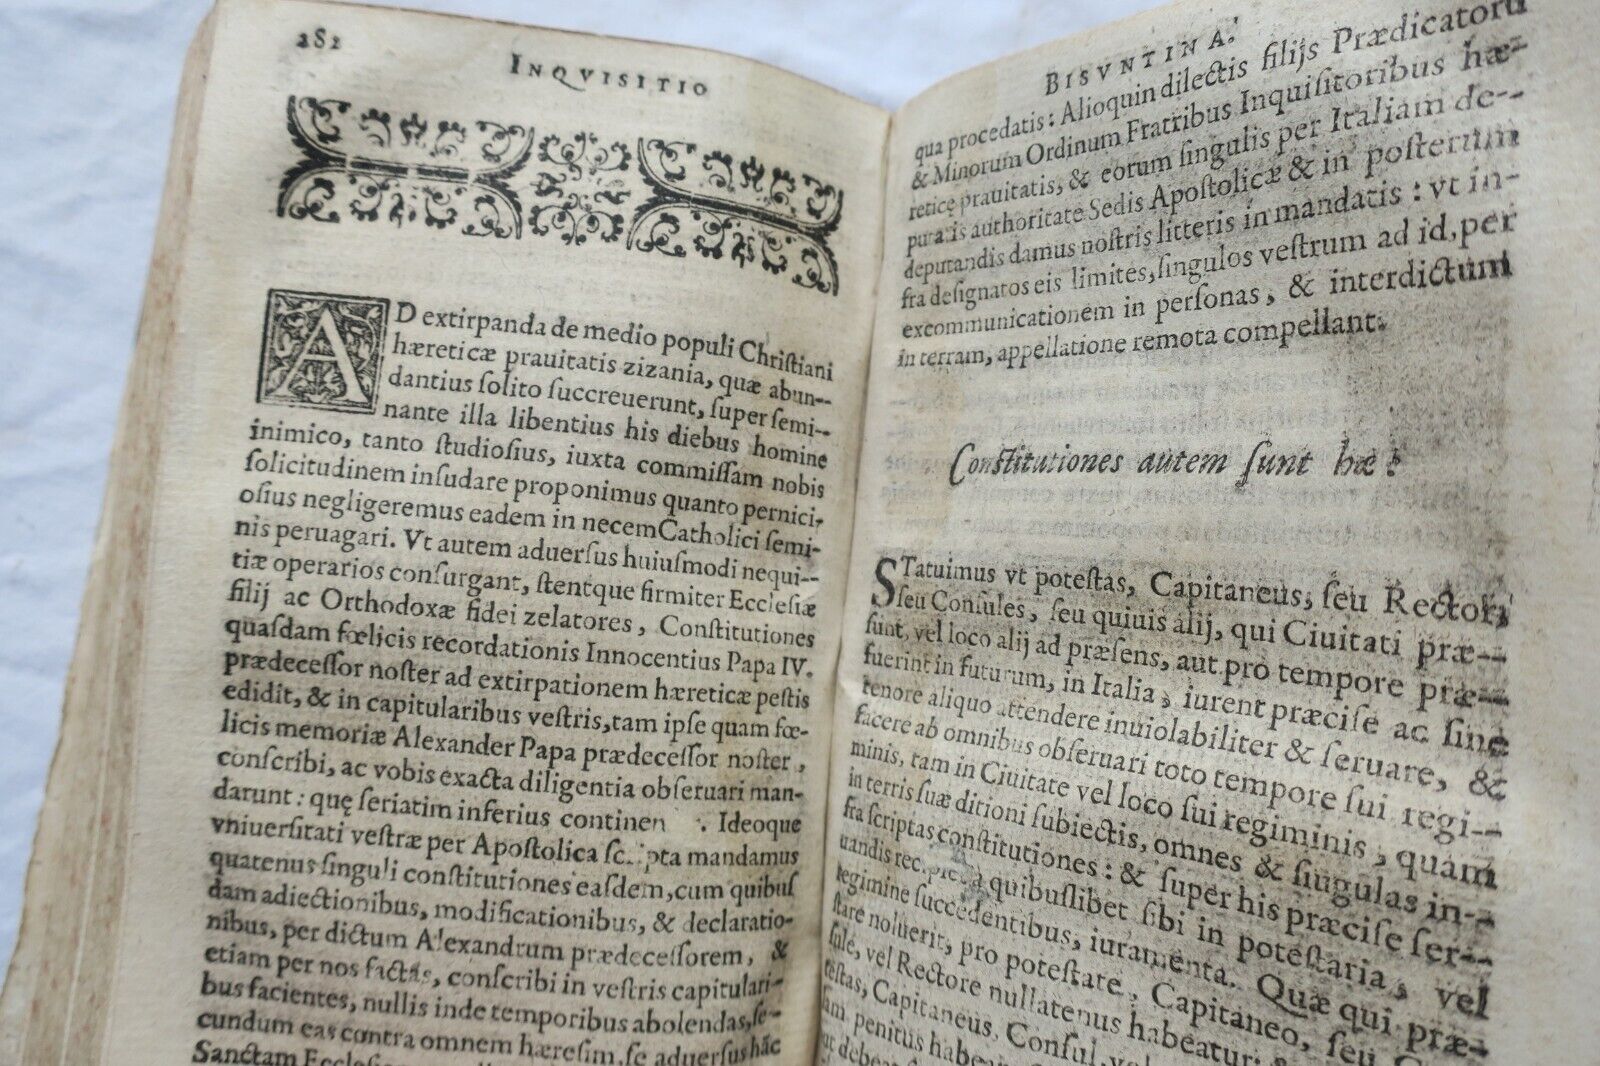 282
INQVISITIO
AD extirpanda de medio populi Christiani
hæreticæ prauitatis zizania, quæ abun-
dantius ſolito ſuccreuerunt, ſuper ſemi-
nante illa libentius his diebus homine
inimico, tanto ſtudioſius, iuxta commiſſam nobis
ſolicitudinem inſudare proponimus quanto pernici-
oſius negligeremus eadem in necem Catholici ſemi-
nis peruagari. Vt autem aduerſus huiuſmodi nequi-
tiæ operarios conſurgant, ſtentque firmiter Eccleſiæ
filij ac Orthodoxæ fidei zelatores, Conſtitutiones
quaſdam fœlicis recordationis Innocentius Papa IV.
prædeceſſor noſter ad extirpationem hæreticæ peſtis
edidit, & in capitularibus veſtris, tam ipſe quam fœ-
licis memoriæ Alexander Papa prædeceſſor noſter,
conſcribi, ac vobis exacta diligentia obſeruari man-
darunt: quę ſeriatim inferius continen . Ideoque
vniuerſitati veſtræ per Apoſtolica ſcripta mandamus
quatenus ſinguli conſtitutiones eaſdem, cum quibuſ
dam adiectionibus, modificationibus, & declaratio-
nibus, per dictum Alexandrum prædeceſſorem, &
etiam per nos factas, conſcribi in veſtris capitulari-
bus facientes, nullis inde temporibus abolendas, ſe-
cundum eas contra omnem hæreſim, ſe aduerſus hāc
Sanctam Eccleſi
BISVNTINA.
qua procedatis: Alioquin dilectis filijs Prædicatorū
& Minorum Ordinum Fratribus Inquiſitoribus hæ-
reticę prauitatis, & eorum ſingulis per Italiam de-
putatis authoritate Sedis Apoſtolicæ & in poſterum
deputandis damus noſtris litteris in mandatis: vt in-
fra deſignatos eis limites, ſingulos veſtrum ad id, per
excommunicationem in perſonas, & interdictum
in terram, appellatione remota compellant.
Conſtitutiones autem ſunt hæ:
STatuimus vt poteſtas, Capitaneus, ſeu Rector,
ſeu Conſules, ſeu quiuis alij, qui Ciuitati præ-
ſunt, vel loco alij ad præſens, aut pro tempore præ-
fuerint in futurum, in Italia, iurent præciſe ac ſine
tenore aliquo attendere inuiolabiliter & ſeruare, &
facere ab omnibus obſeruari toto tempore ſui regi-
minis, tam in Ciuitate vel loco ſui regiminis, quam
in terris ſuæ ditioni ſubiectis, omnes & ſingulas in-
fra ſcriptas conſtitutiones: & ſuper his præciſe ſer-
uandis recipient quibuſlibet ſibi in poteſtaria, vel
regimine ſuccedentibus, iuramenta. Quæ qui præ-
ſtare noluerit, pro poteſtate, Capitaneo, ſeu
ſule, vel Rectore nullatenus habeatur: &
teſtas, Capitaneus, Conſul, vel
penitus